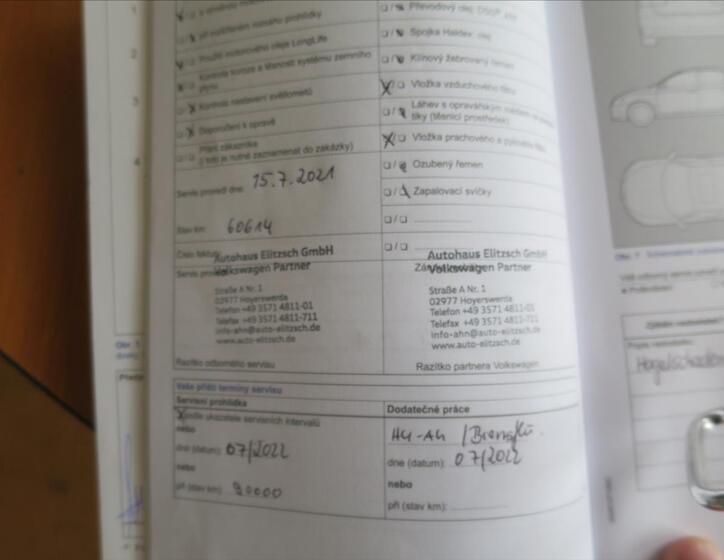 při rozšířeném rozsahu prohlídky
Použití motorového oleje LongLife
Kontrola koroze a těsnosti systému zemního
plynu
Kontrola nastavení světlometů
Doporučení k opravě
Přání zákazníka
(toto je nutné zaznamenat do zakázky)
Servis proveden dne: 15.7.2021
Stav km: 60614
Autohaus Elitzsch GmbH
Volkswagen Partner
Straße A Nr. 1
02977 Hoyerswerda
Telefon +49 3571 4811-01
Telefax +49 3571 4811-711
info-ahn@auto-elitzsch.de
www.auto-elitzsch.de
Razítko odborného servisu
Převodový olej
Spojka Haldex: olej
Klínový žebrovaný řemen
Vložka vzduchového filtru
Láhev s opravářským
tiky (těsnicí prostředek)
Vložka prachového a pylového filtru
Ozubený řemen
Zapalovací svíčky
Autohaus Elitzsch GmbH
Volkswagen Partner
Straße A Nr. 1
02977 Hoyerswerda
Telefon +49 3571 4811-01
Telefax +49 3571 4811-711
info-ahn@auto-elitzsch.de
www.auto-elitzsch.de
Razítko partnera Volkswagen
Vaše příští termíny servisu
Servisní prohlídka
podle ukazatele servisních intervalů
nebo
dne (datum): 07/2022
nebo
při (stav km): 90000
Dodatečné práce
HU-AU
dne (datum): 07/2022
nebo
při (stav km):
1
2
3
4